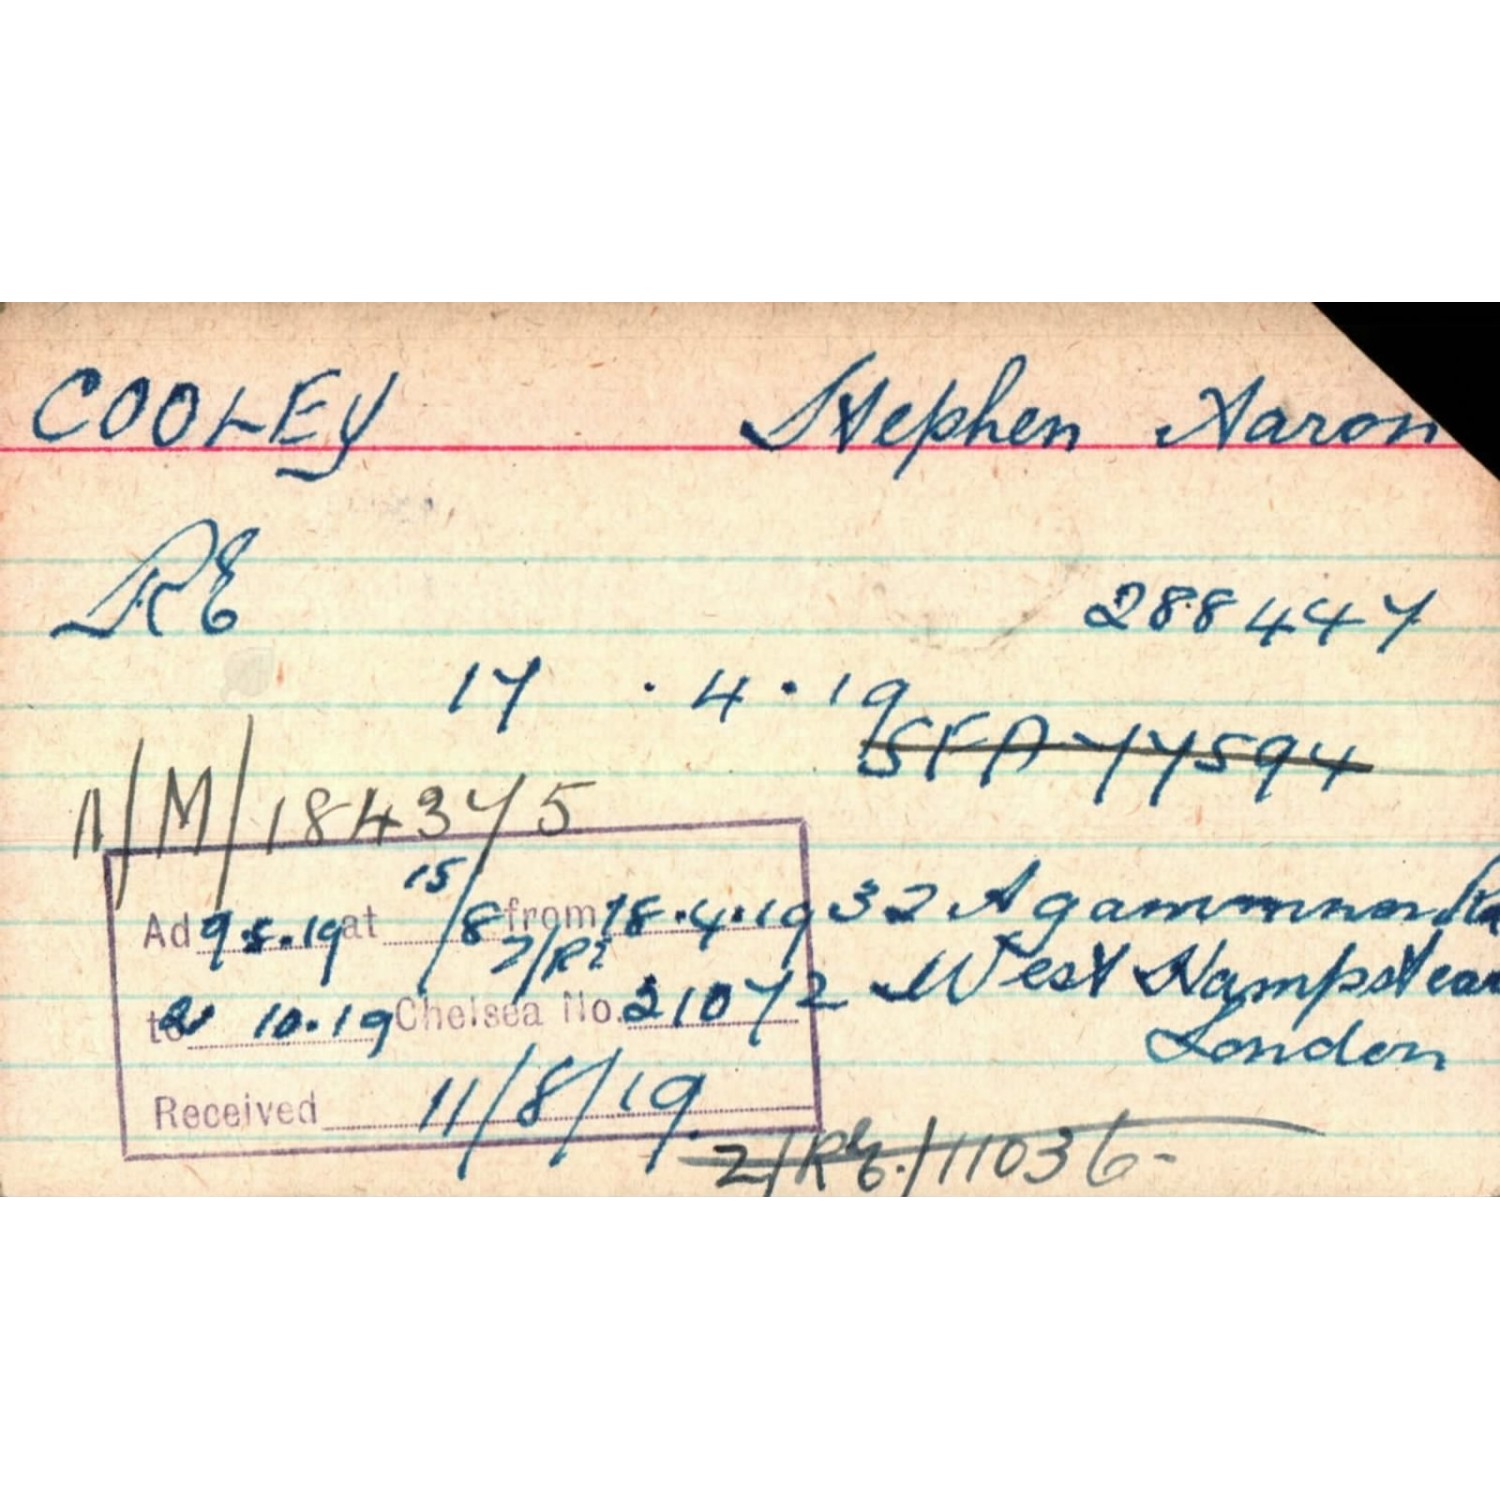 COOLEY Stephen Aaron
RE
288447
17 . 4 . 19
SFA 77594
N/M/184375
Ad 9.8.19 at 15/8 from 18.4.19 32 Agammnon Rd
7/RE
to 21 10.19 Chelsea No. 21072 West Hampstead
London
Received 11/8/19.
2/RE./11036-